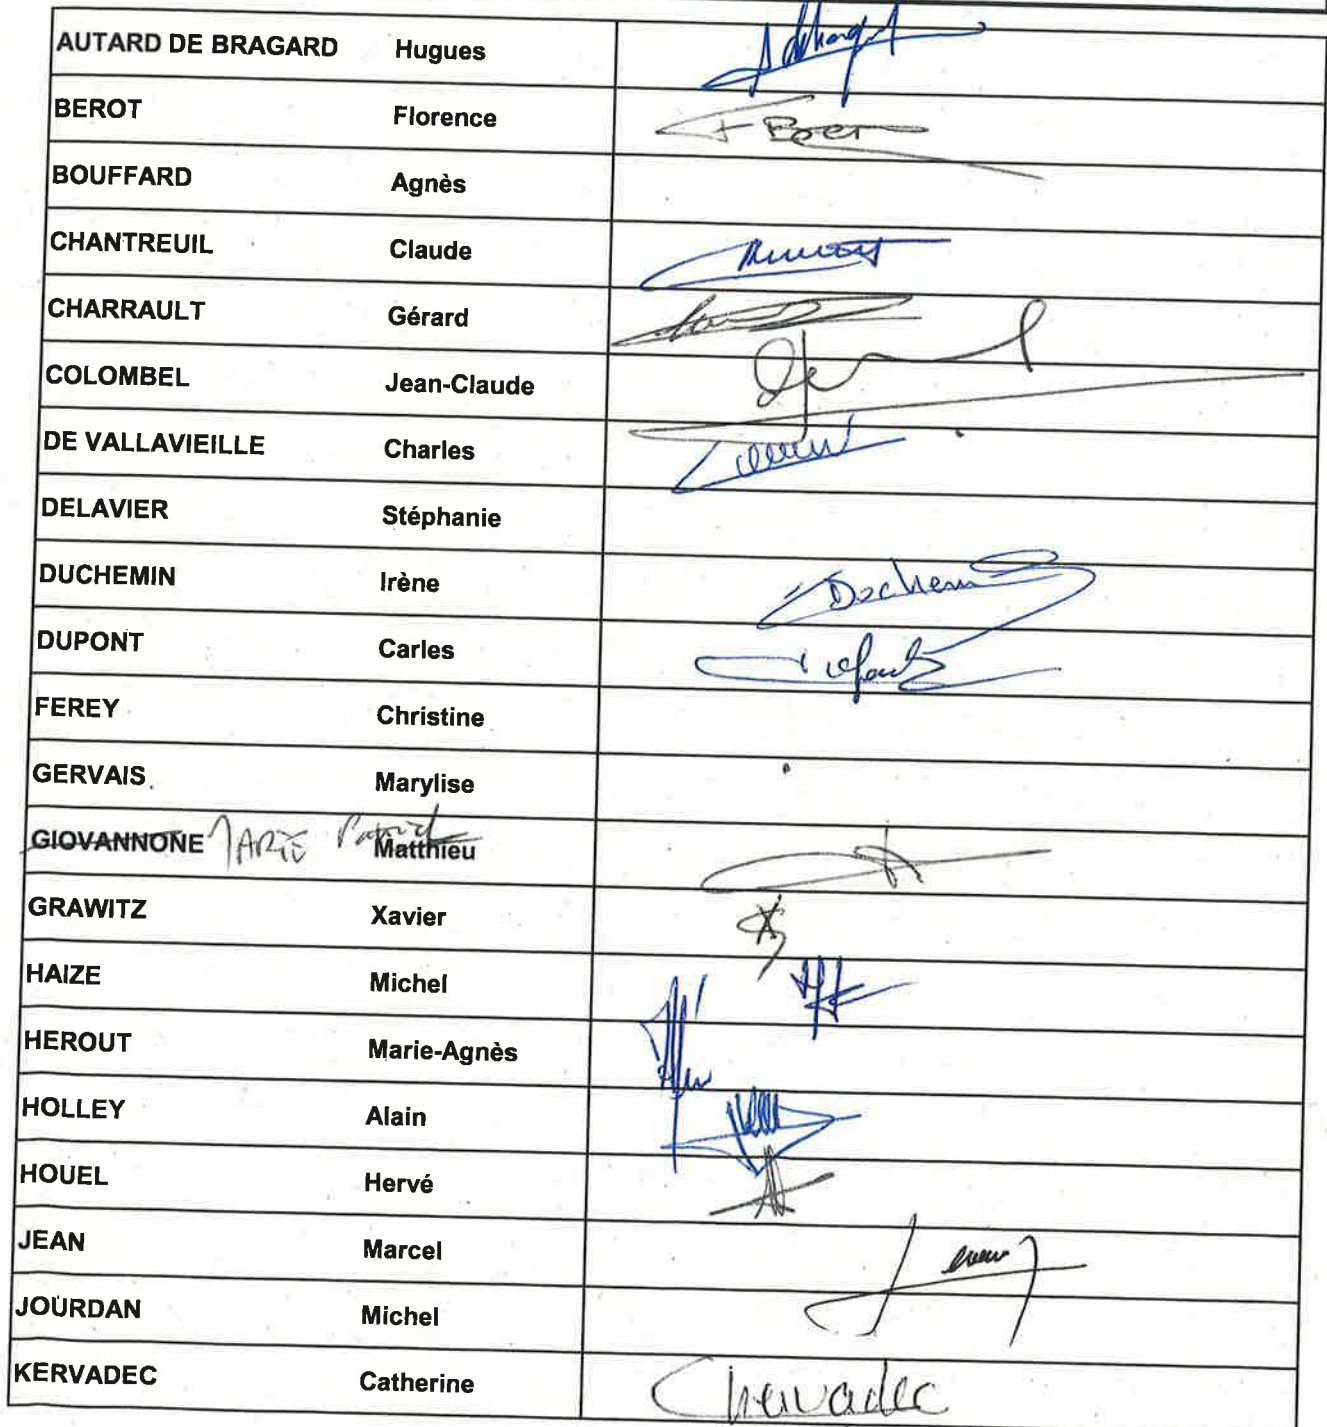 AUTARD DE BRAGARD Hugues
BEROT Florence
BOUFFARD Agnès
CHANTREUIL Claude
CHARRAULT Gérard
COLOMBEL Jean-Claude
DE VALLAVIEILLE Charles
DELAVIER Stéphanie
DUCHEMIN Irène
DUPONT Carles
FEREY Christine
GERVAIS Marylise
GIOVANNONE MARIE Patrick Matthieu
GRAWITZ Xavier
HAIZE Michel
HEROUT Marie-Agnès
HOLLEY Alain
HOUEL Hervé
JEAN Marcel
JOURDAN Michel
KERVADEC Catherine